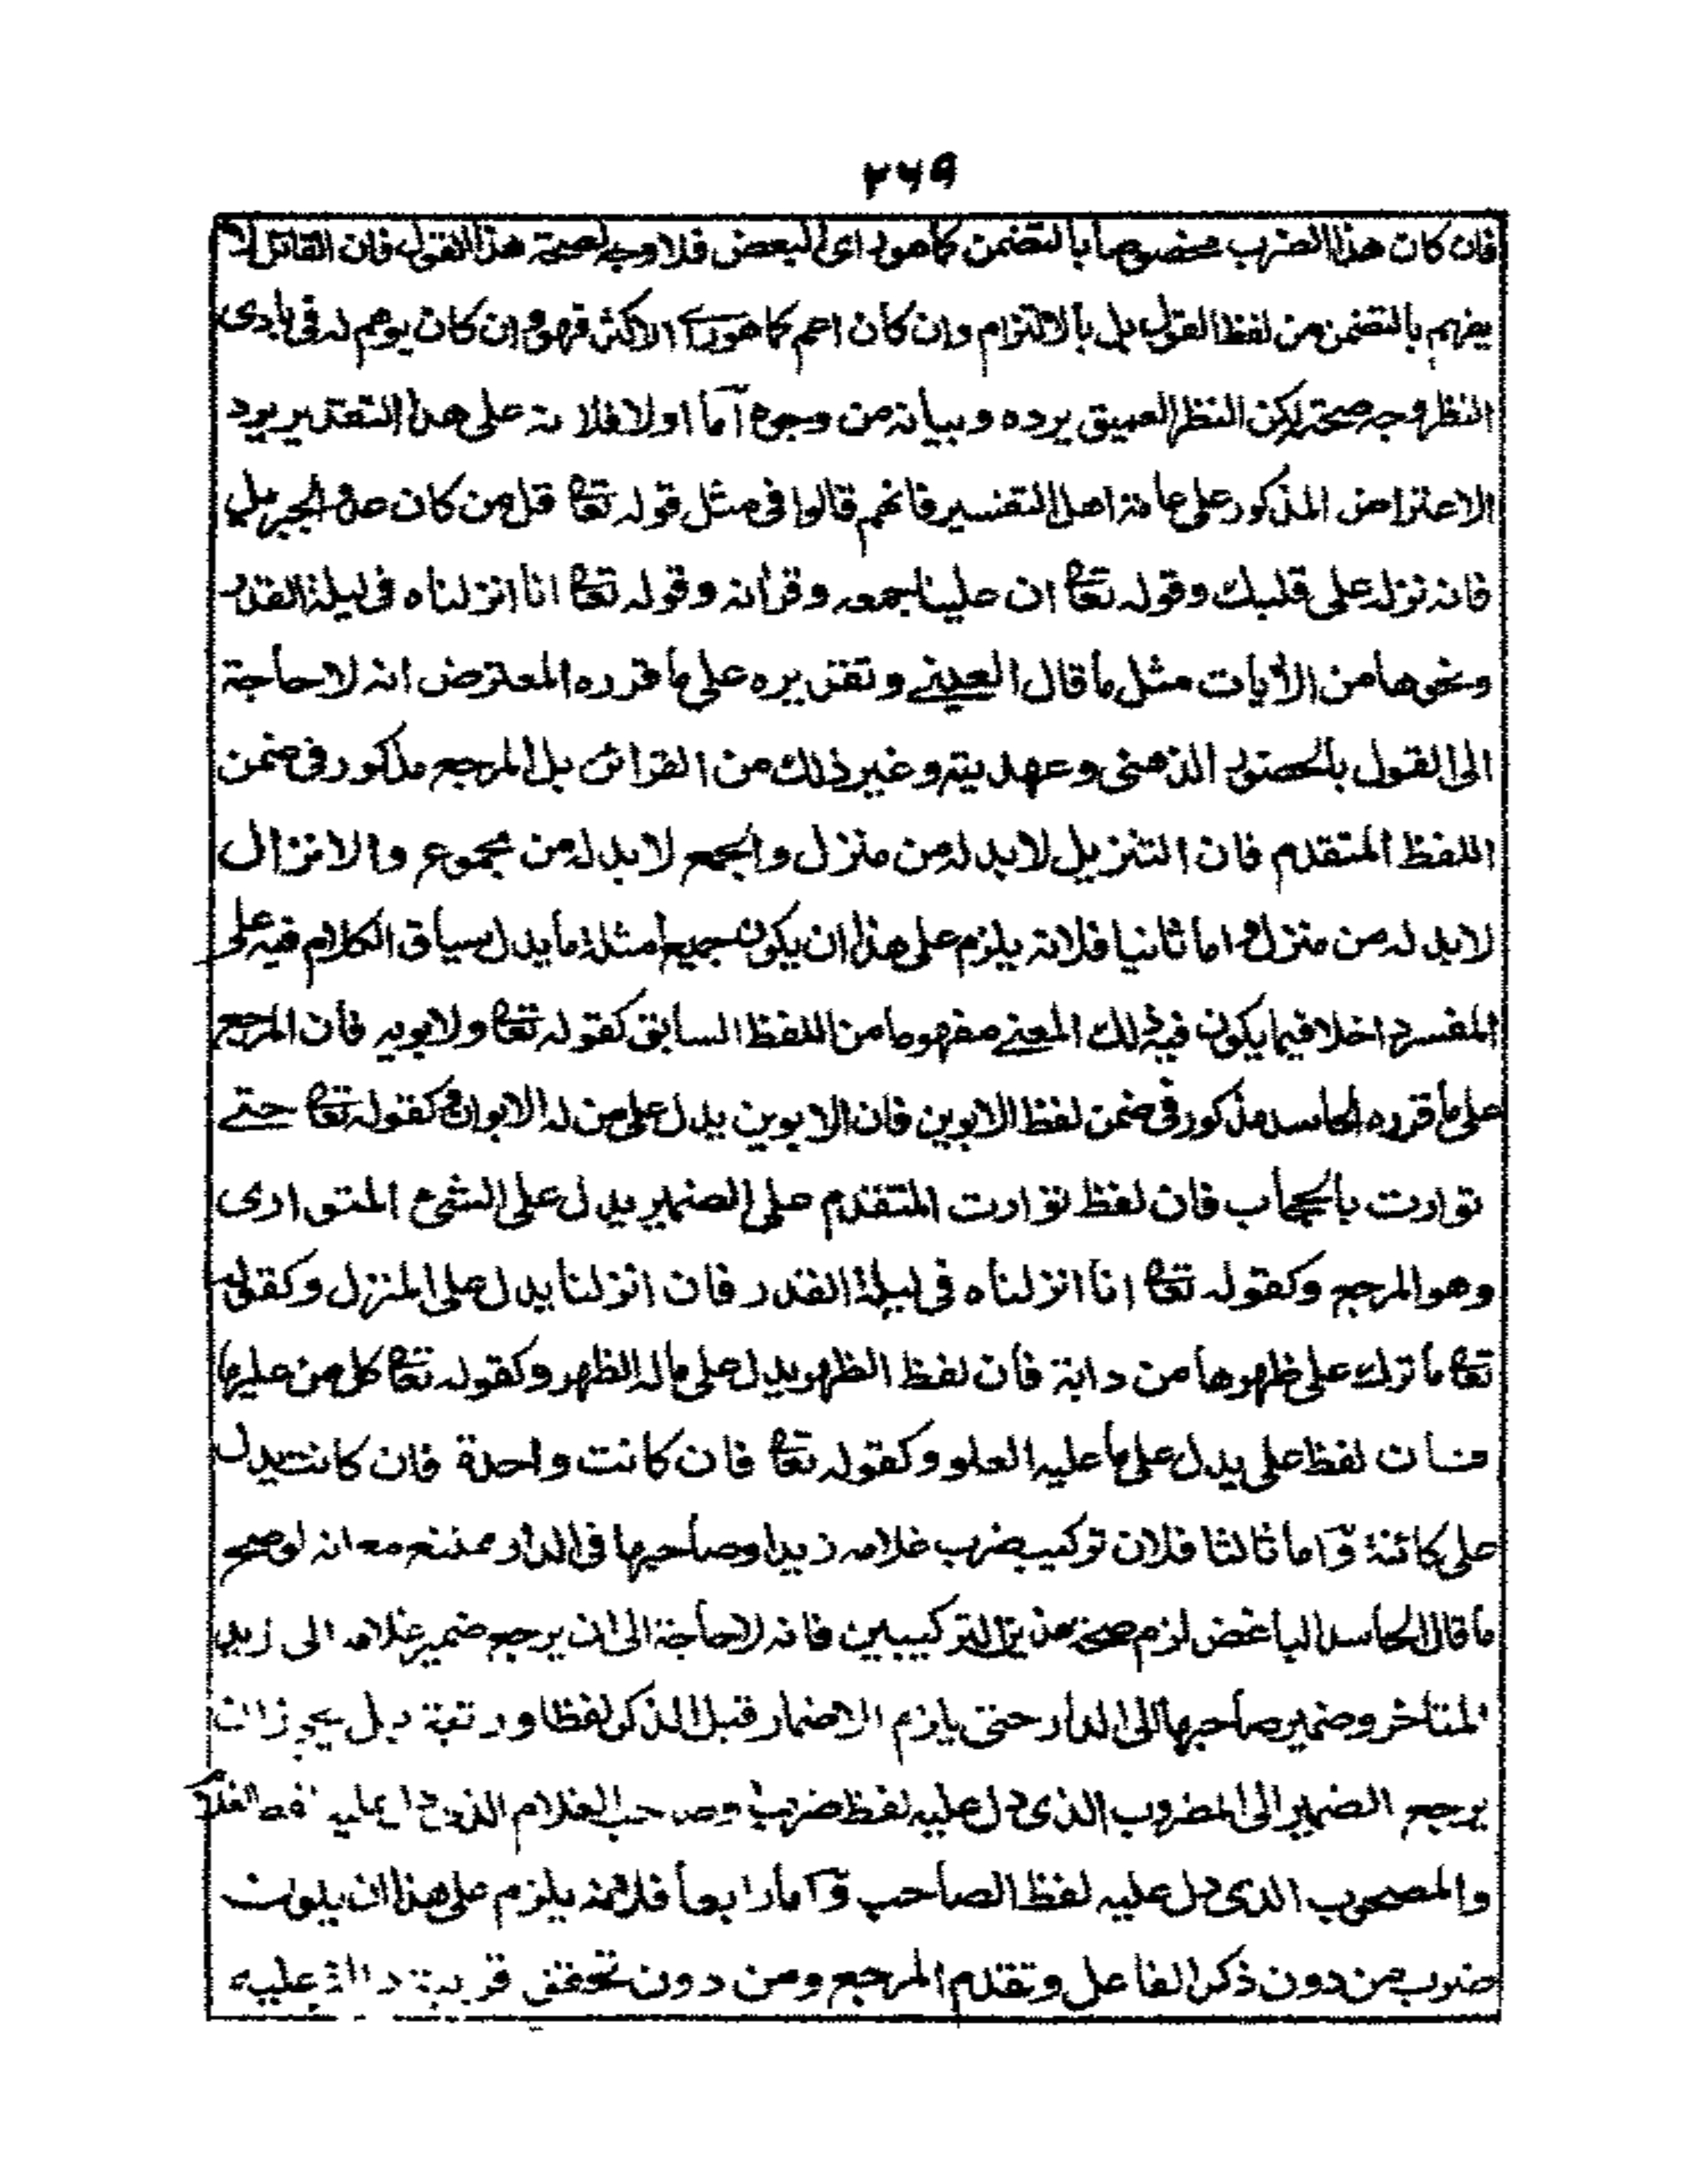 ۲۶۹
فان كان هذا الضرب مخصوصا بالتضمن كما هو راى البعض فلا وجه لصحة هذا القول فان القائل لا
يفهم بالتضمن من لفظ القول بل بالالتزام وان كان اعم كما هو راے الاكثر فهو وان كان يوهم له فى بادى
النظر وجه صحة لكن النظر العميق يرده وبيانه من وجوه آما اولا فلانه على هذا التقدير يرد
الاعتراض المذكور على عامة اهل التفسير فانهم قالوا فى مثل قوله تعا قل من كان عدوا لجبريل
فانه نزله على قلبك وقوله تعا ان علينا جمعه وقرأنه وقوله تعا انا انزلناه فى ليلة القدر
ونحوها من الأيات مثل ما قال العينے وتقريره على ما قرره المعترض انه لا حاجة
الى القول بالحضور الذهنى وعهديته وغير ذلك من القرائن بل المرجع مذكور فى ضمن
اللفظ المتقدم فان التنزيل لابد له من منزل والجمع لابد له من مجموع والانزال
لابد له من منزل واما ثانيا فلانه يلزم على هذا ان يكون جميع امثلة ما يدل سياق الكلام فيه على
المفسر داخلا فيما يكون فيه ذلك المعنے مفهوما من اللفظ السابق كقوله تعا ولابويه فان المرجع
على ما قرره الحاسد مذكور فى ضمن لفظ الابوين فان الابوين يدل على من له الابوان وكقوله تعا حتے
توارت بالحجاب فان لفظ توارت المتقدم على الضمير يدل على الشئ المتوارى
وهو المرجع وكقوله تعا انا انزلناه فى ليلة القدر فان انزلنا يدل على المنزل وكقوله
تعا ما ترك على ظهورها من دابة فان لفظ الظهر يدل على ما له الظهر وكقوله تعا كل من عليها
فان لفظ على يدل على ما عليه العلو وكقوله تعا فان كانت واحدة فان كانت يدل
على كائنة وآما ثالثا فلان تركيب ضرب غلامه زيدا وصاحبها فى الدار ممتنع مع انه لو صح
ما قال الحاسد الباغض لزم صحة هذين التركيبين فانه لا حاجة الى ان يرجع ضمير غلامه الى زيد
المتأخر وضمير صاحبها الى الدار حتى يلزم الاضمار قبل الذكر لفظا ورتبة بل يجوز ان
يرجع الضمير الى المضروب الذى دل عليه لفظ ضرب وصاحب الغلام الذى دل عليه لفظ الغلام
والمصحوب الذى دل عليه لفظ الصاحب وآما رابعا فلانه يلزم على هذا ان يكون
ضرب من دون ذكر الفاعل وتقدم المرجع ومن دون تحقق قرينة دالة عليه